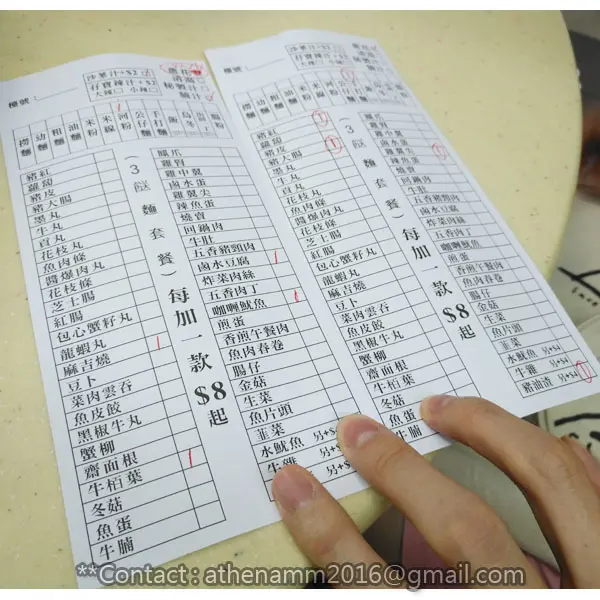 沙爹汁+$2
仔寶辣汁+$2
大辣□ 小辣□
檯號:
撈麵
幼麵
粗麵
油麵
米粉
米線
河粉
公仔麵
手打麵
飯
烏冬
豬紅
蘿蔔
豬皮
豬大腸
墨丸
牛丸
貢丸
魚肉條
醬爆肉丸
花枝條
芝士腸
紅腸
包心蟹籽丸
龍蝦丸
麻吉燒
豆卜
菜肉雲吞
魚皮餃
黑椒牛丸
蟹柳
齋面根
牛栢葉
冬菇
魚蛋
牛腩
(3餸麵套餐)每加一款$8起
鳳爪
雞腎
雞中翼
鹵水蛋
雞翼尖
辣魚蛋
燒賣
回鍋肉
牛肚
五香豬頸肉
鹵水豆腐
炸菜肉絲
五香肉丁
咖喱魷魚
煎蛋
香煎午餐肉
魚肉春卷
腸仔
金菇
生菜
魚片頭
韭菜
水魷魚 另+$
牛雜 另+$
沙爹汁+$2
仔寶辣汁+$2
大辣□ 小辣□
檯號:
撈麵
幼麵
粗麵
油麵
米粉
米線
河粉
公仔麵
手打麵
飯
烏冬
豬紅
蘿蔔
豬皮
豬大腸
墨丸
牛丸
貢丸
魚肉條
醬爆肉丸
花枝丸
芝士腸
紅腸
包心蟹籽丸
龍蝦丸
麻吉燒
豆卜
菜肉雲吞
魚皮餃
黑椒牛丸
蟹柳
齋面根
牛栢葉
冬菇
魚蛋
牛腩
(3餸麵套餐)每加一款$8起
鳳爪
雞腎
雞中翼
鹵水蛋
雞翼尖
辣魚蛋
燒賣
回鍋肉
牛肚
五香豬頸肉
鹵水豆腐
炸菜肉絲
五香肉丁
咖喱魷魚
煎蛋
香煎午餐肉
魚肉春卷
腸仔
金菇
生菜
魚片頭
韭菜
水魷魚 另+$4
牛雜 另+$4
豬油渣 另+$4
**Contact : athenamm2016@gmail.com